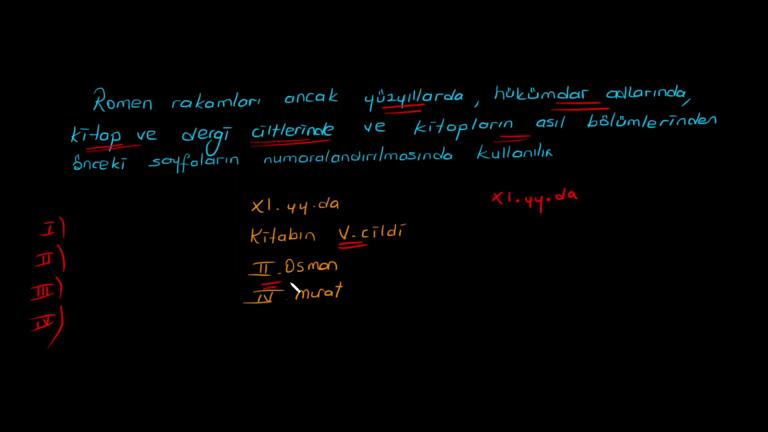 Romen rakamları ancak yüzyıllarda, hükümdar adlarında,
kitap ve dergi ciltlerinde ve kitapların asıl bölümlerinden
önceki sayfaların numaralandırılmasında kullanılır
XI.yy.da
XI.yy.da
I)
Kitabın V.cildi
II)
II.Osman
III)
IV Murat
IV)